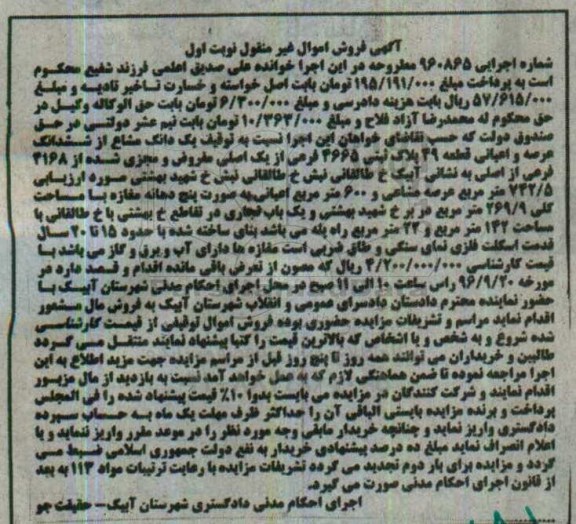 آگهی فروش اموال غیر منقول نوبت اول
شماره اجرایی ۹۶۰۸۶۵ مطروحه در این اجرا خوانده علی صدیق اعلمی فرزند شفیع محکوم
است به پرداخت مبلغ ۱۹۵/۱۹۱/۰۰۰ تومان بابت اصل خواسته و خسارت تاخیر تادیه و مبلغ
۵۷/۶۱۵/۰۰۰ ریال بابت هزینه دادرسی و مبلغ ۶/۳۰۰/۰۰۰ تومان بابت حق الوکاله وکیل در
حق محکوم له محمدرضا آزاد فلاح و مبلغ ۱۰/۳۶۳/۰۰۰ تومان بابت نیم عشر دولتی در حق
صندوق دولت که حسب تقاضای خواهان این اجرا نسبت به توقیف یک دانک مشاع از ششدانک
عرصه و اعیانی قطعه ۴۹ پلاک ثبتی ۴۶۶۵ فرعی از یک اصلی مفروفی و مجزی شده از ۴۱۶۸
فرعی از اصلی به نشانی آبیک خ طالقانی نبش خ طالقانی نبش خ شهید بهشتی مورد ارزیابی
۷۴۲/۵ متر مربع عرصه مشاعی و ۶۰۰ متر مربع اعیانی به صورت پنج دهانه مغازه با مساحت
کلی ۲۶۹/۹ متر مربع در بر خ شهید بهشتی و یک باب تجاری در تقاطع خ بهشتی با خ طالقانی با
مساحت ۱۴۲ متر مربع و ۲۲ متر مربع راه پله می باشد بنای ساخته شده با حدود ۱۵ تا ۲۰ سال
قدمت اسکلت فلزی نمای سنگی و طاق ضربی است مغازه ها دارای آب و برق و گاز می باشد با
قیمت کارشناسی ۴/۲۰۰/۰۰۰/۰۰۰ ریال که مصون از تعرض باقی مانده اقدام و قصد دارد در
مورخه ۹۶/۹/۲۰ راس ساعت ۱۰ الی ۱۱ صبح در محل اجرای احکام مدنی شهرستان آبیک با
حضور نماینده محترم دادستان دادسرای عمومی و انقلاب شهرستان آبیک به فروش مال مشعور
اقدام نماید مراسم و تشریفات مزایده حضوری بوده فروش اموال توقیفی از قیمت کارشناسی
شده شروع و به شخص و یا اشخاص که بالاترین قیمت را کتبا پیشنهاد نمایند منتقل می گردد
طالبین و خریداران می توانند همه روز تا پنج روز قبل از مراسم مزایده جهت مزید اطلاع به این
اجرا مراجعه نموده تا ضمن هماهنگی لازم که به عمل خواهد آمد نسبت به بازدید از مال مزبور
اقدام نمایند و شرکت کنندگان در مزایده می بایست بدوا ۱۰٪ قیمت پیشنهاد شده را فی المجلس
پرداخت و برنده مزایده بایستی الباقی آن را حداکثر ظرف مهلت یک ماه به حساب سپرده
دادگستری واریز نماید و چنانچه خریدار مابقی وجه مورد نظر را در موعد مقرر واریز ننماید و یا
اعلام انصراف نماید مبلغ ده درصد پیشنهادی خریدار به نفع دولت جمهوری اسلامی ضبط می
گردد و مزایده برای بار دوم تجدید می گردد تشریفات مزایده با رعایت ترتیبات مواد ۱۱۳ به بعد
از قانون اجرای احکام مدنی صورت می گیرد.
اجرای احکام مدنی دادگستری شهرستان آبیک – حقیقت جو